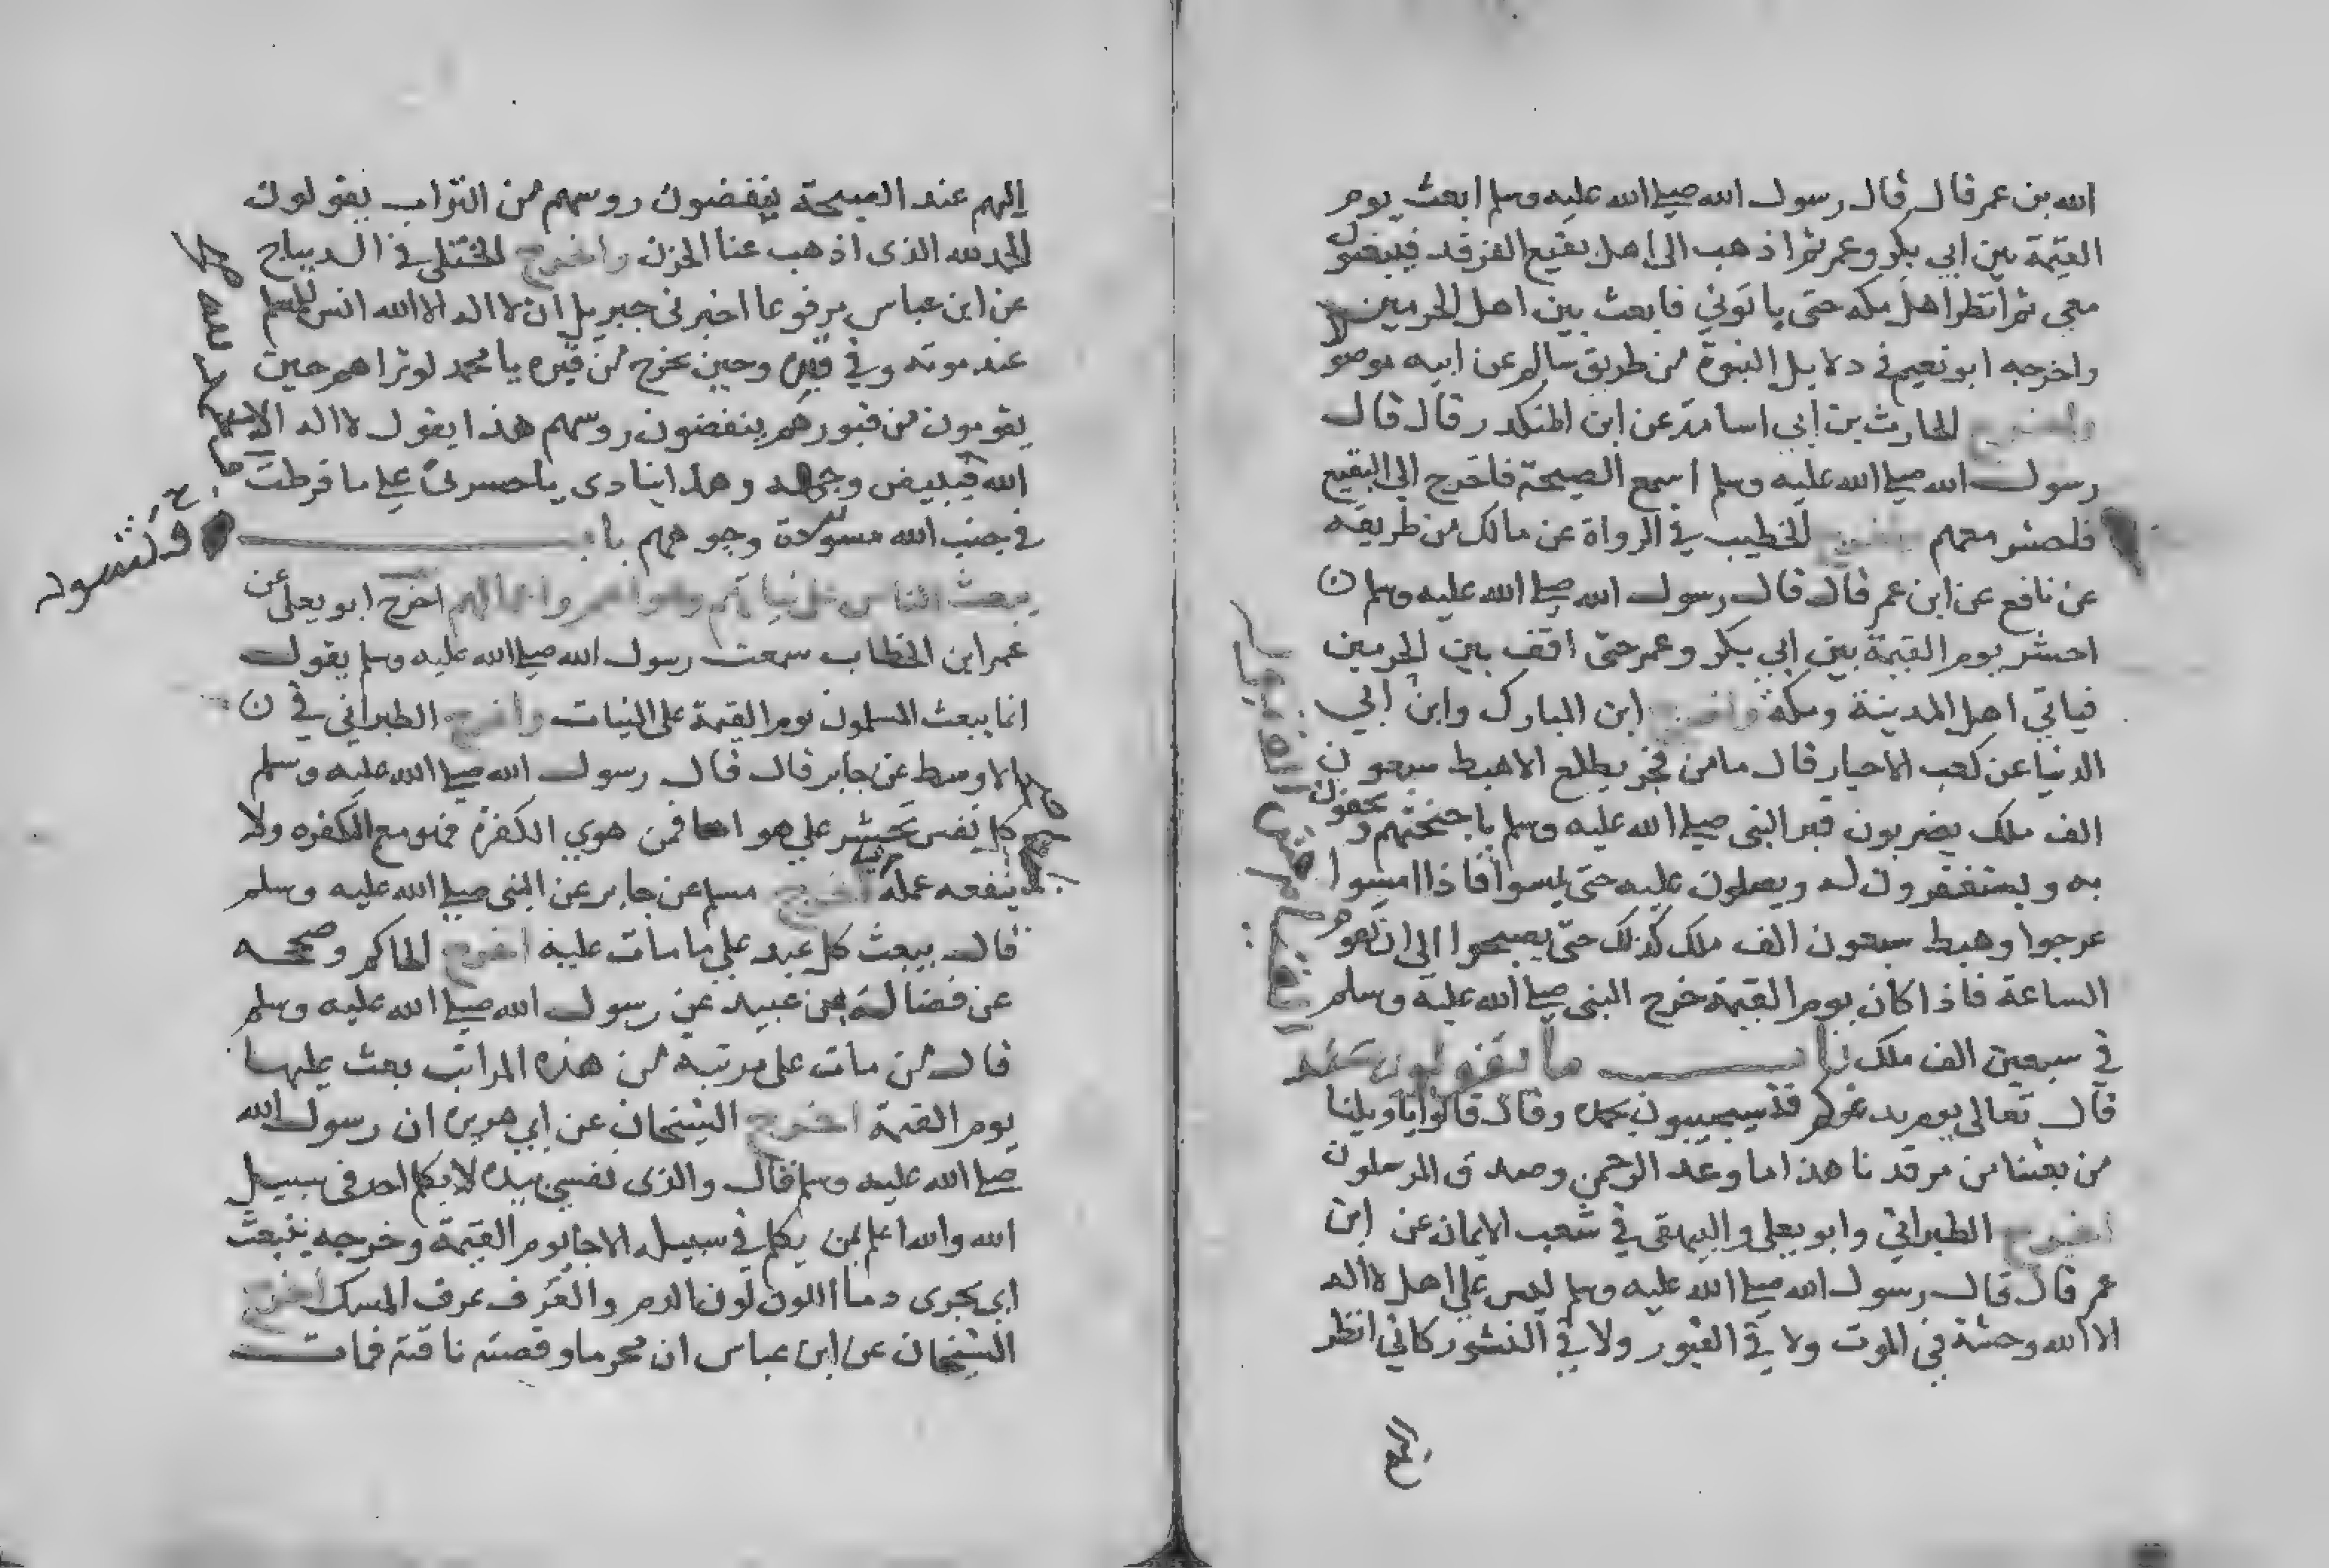 الله بن عمر قال قال رسول الله صلى الله عليه وسلم ابعث يوم
القيمة بين ابي بكر وعمر ثم اذهب الى اهل بقيع الغرقد فيبعثون
معي ثم انتظر اهل مكه حتى ياتوني فابعث بين اهل الحرمين
واخرجه ابو نعيم في دلايل النبوة من طريق سالم عن ابيه موصولا
واخرج الحارث بن ابي اسامة عن ابن المنكدر قال قال
رسول الله صلى الله عليه وسلم اسمع الصيحة فاخرج الى البقيع
فاحشر معهم واخرج الخطيب في الرواة عن مالك من طريقه
عن نافع عن ابن عمر قال قال رسول الله صلى الله عليه وسلم
احشر يوم القيمة بين ابي بكر وعمر حتى اقف بين الحرمين
فياتي اهل المدينة ومكة واخرج ابن المبارك وابن ابي
الدنيا عن كعب الاحبار قال ما من فجر يطلع الا هبط سبعون
الف ملك يضربون قبر النبي صلى الله عليه وسلم باجنحتهم ويحفون
به ويستغفرون له ويصلون عليه حتى يمسوا فاذا امسوا
عرجوا وهبط سبعون الف ملك كذلك حتى يصبحوا الى ان تقوم
الساعة فاذا كان يوم القيمة خرج النبي صلى الله عليه وسلم
في سبعين الف ملك باب ما يقولون عند
قال تعالى يوم يدعوكم فتستجيبون بحمده وقال قالوا ياويلنا
من بعثنا من مرقدنا هذا ما وعد الرحمن وصدق المرسلون
اخرج الطبراني وابو يعلى والبيهقي في شعب الايمان عن ابن
عمر قال قال رسول الله صلى الله عليه وسلم ليس على اهل لا اله
الا الله وحشة في الموت ولا في القبور ولا في النشور كاني انظر
اليهم عند الصيحة ينفضون روسهم من التراب يقولون
الحمد لله الذي اذهب عنا الحزن واخرج الختلي في الديباج
عن ابن عباس مرفوعا اخبرني جبريل ان لا اله الا الله انس للمسلم
عند موته وفي قبره وحين يخرج من قبره يا محمد لو تراهم حين
يقومون من قبورهم ينفضون روسهم هذا يقول لا اله الا
الله فيبيض وجهه وهذا ينادي ياحسرتى على ما فرطت
في جنب الله مسودة وجوههم باب
يبعث الناس على نياتهم واهوائهم واعمالهم اخرج ابو يعلى عن
عمر ابن الخطاب سمعت رسول الله صلى الله عليه وسلم يقول
انما يبعث المسلمون يوم القيمة على النيات واخرج الطبراني في
الاوسط عن جابر قال قال رسول الله صلى الله عليه وسلم
كل نفس تحشر على هواها فمن هوي الكفرة فهو مع الكفره ولا
ينفعه عمله اخرج مسلم عن جابر عن النبي صلى الله عليه وسلم
قال يبعث كل عبد على ما مات عليه اخرج الحاكم وصححه
عن فضالة بن عبيد عن رسول الله صلى الله عليه وسلم
قال من مات على مرتبة من هذه المراتب بعث عليها
يوم القيمة اخرج الشيخان عن ابي هريرة ان رسول الله
صلى الله عليه وسلم قال والذي نفسي بيده لا يكلم احد في سبيل
الله والله اعلم بمن يكلم في سبيله الا جا يوم القيمة وجرحه
دما اللون لون الدم والعرف عرف المسك اخرج
الشيخان عن ابن عباس ان محرما وقصته ناقته فمات